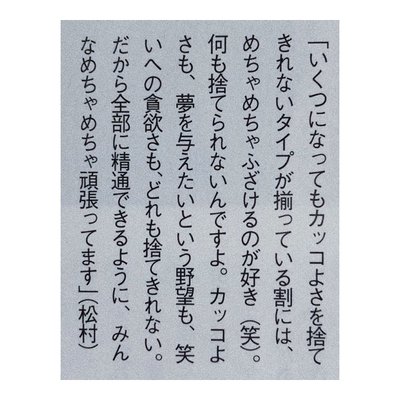 「いくつになってもカッコよさを捨て
きれないタイプが揃っている割には、
めちゃめちゃふざけるのが好き(笑)。
何も捨てられないんですよ。カッコよ
さも、夢を与えたいという野望も、笑
いへの貪欲さも、どれも捨てきれない。
だから全部に精通できるように、みん
なめちゃめちゃ頑張ってます」(松村)